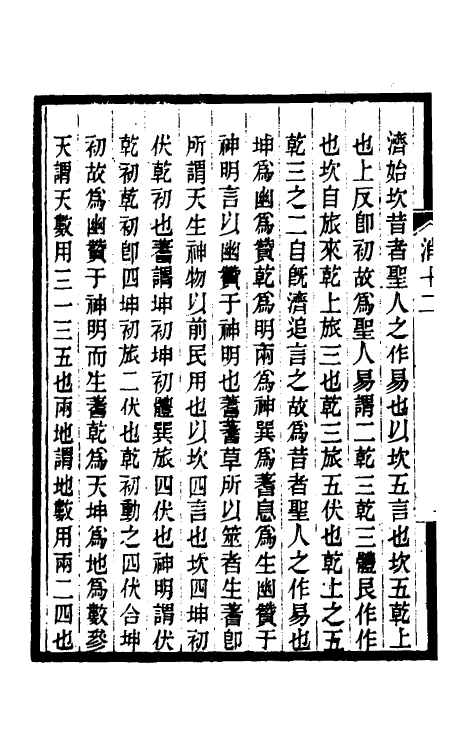 濟始坎昔者聖人之作易也以坎五言也坎五乾上
也上反卽初故爲聖人易謂二乾三乾三體艮作作
也坎自旅來乾上旅三也乾三旅五伏也乾上之五
乾三之二自旣濟追言之故爲昔者聖人之作易也
坤爲幽爲贊乾爲明兩爲神巽爲蓍息爲生幽贊于
神明言以幽贊于神明也蓍蓍草所以筮者生蓍卽
所謂天生神物以前民用也以坎四言也坎四坤初
伏乾初也蓍謂坤初坤初體巽旅四伏也神明謂伏
乾初乾初卽四坤初旅二伏也乾初動之四伏合坤
初故爲幽贊于神明而生蓍乾爲天坤爲地爲數參
天謂天數用三一三五也兩地謂地數用兩二四也
消十二